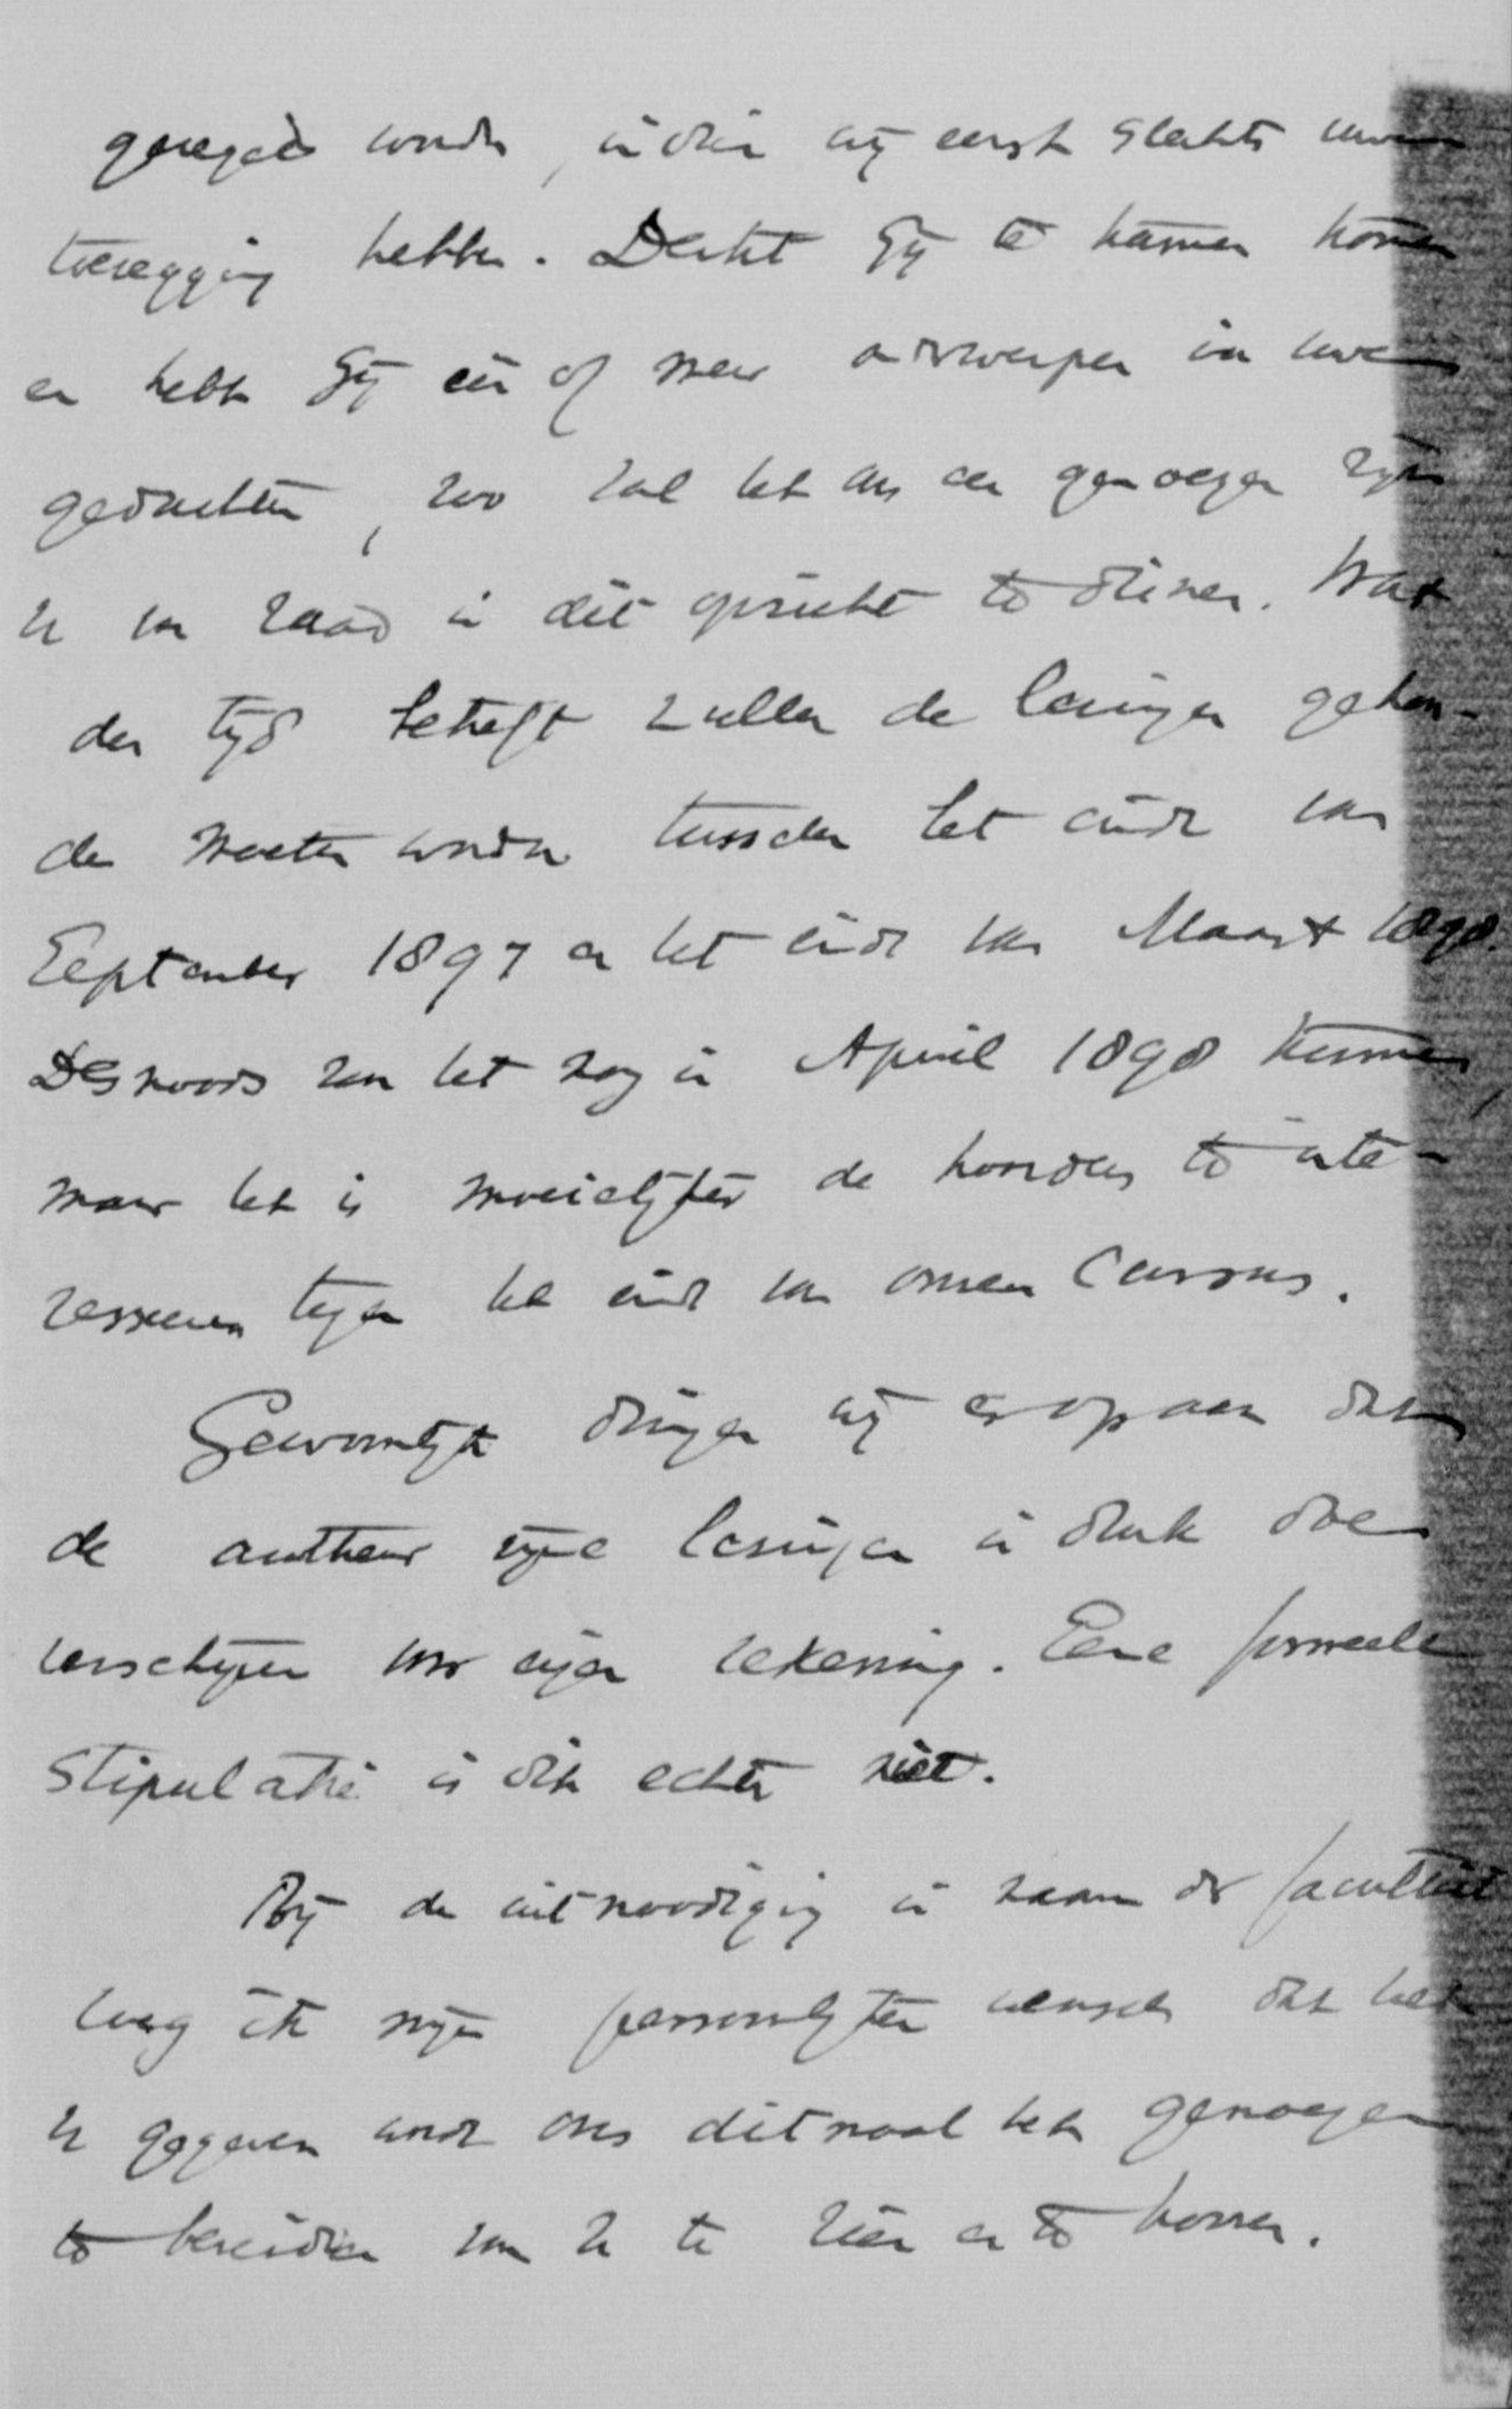 geregeld worden, indien wij eerst slechts uwe
toezegging hebben. Denkt Gij te kunnen komen
en hebt Gij één of meer onderwerpen in uwe
gedachten, zoo zal het ons een genoegen zijn
U van raad in dit opzicht te dienen. Wat
den tijd betreft zullen de lezingen gehou-
den moeten worden tusschen het einde van
September 1897 en het einde van Maart 1898.
Desnoods zou het nog in April 1898 kunnen,
maar het is moeielijker de hoorders te inte-
resseeren tegen het einde van onzen Cursus.
Gewoonlijk dringen wij er op aan dat
de autheur zijne lezingen in druk doe
verschijnen voor eigen rekening. Eene formeele
stipulatie is dit echter niet.
Bij de uitnoodiging in naam der faculteit
voeg ik mijn persoonlijken wensch dat het
U gegeven worde ons ditmaal het genoegen
te bereiden van U te zien en te hooren.